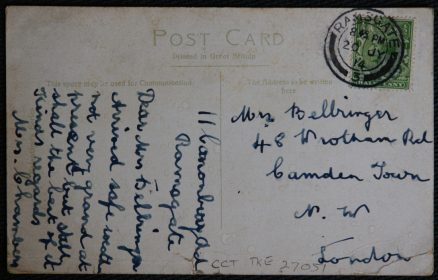 POST CARD
Printed in Great Britain
This space may be used for Communication.
The Address to be written here
RAMSGATE
PM
20 JY
14
11 Canonbury Rd
Ramsgate
Dear Mrs Bellringer
Arrived safe weather
not very grand at
present but still
shall the best of it
Kinds regards
Mrs
Mrs Bellringer
48 Wrotham Rd
Camden Town
N. W
London
CCT TKE 27051